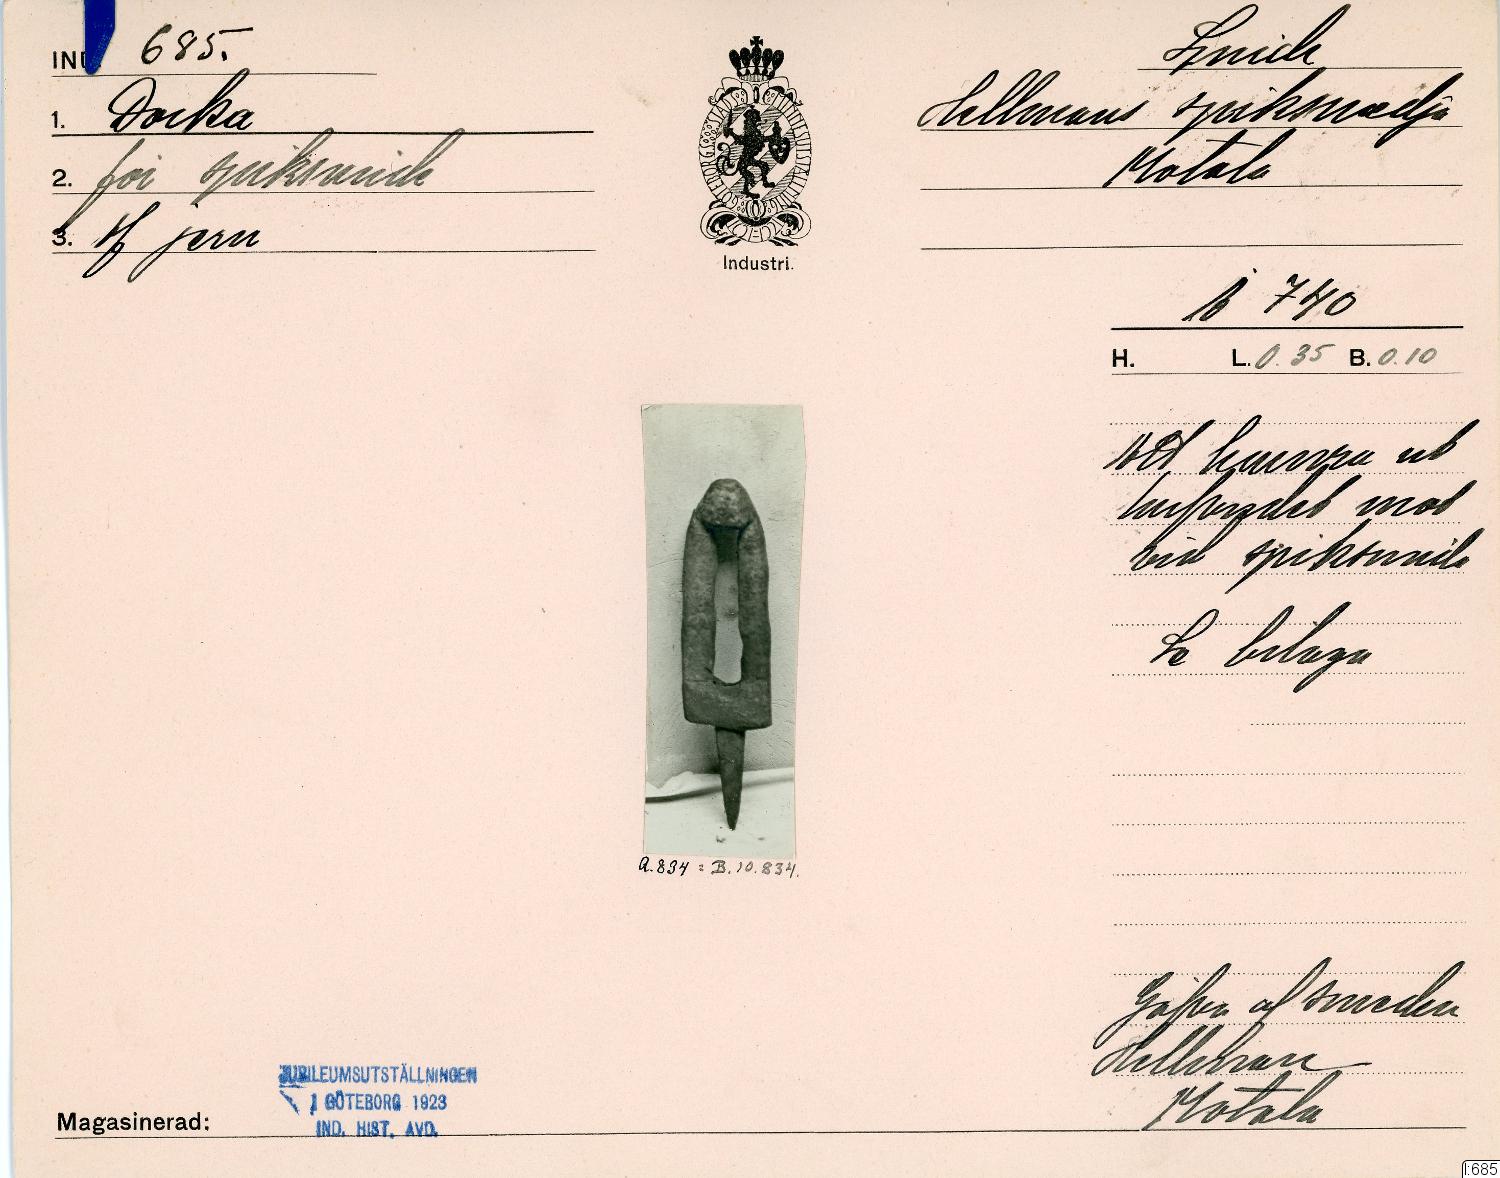 IND. 685.
1. Docka
2. för spiksmide
3. af jern
GÖTEBORGS STADS JUBILEUMSUTSTÄLLNING
Industri.
Smide
Hellmans spiksmedja
Motala
b 740
H. L. 0.35 B. 0.10
vid spiksmide
Se bilaga
A.834 = B.10.834.
Gåfva af smeden
Hellman
Motala
JUBILEUMSUTSTÄLLNINGEN
I GÖTEBORG 1923
IND. HIST. AVD.
Magasinerad:
I:685